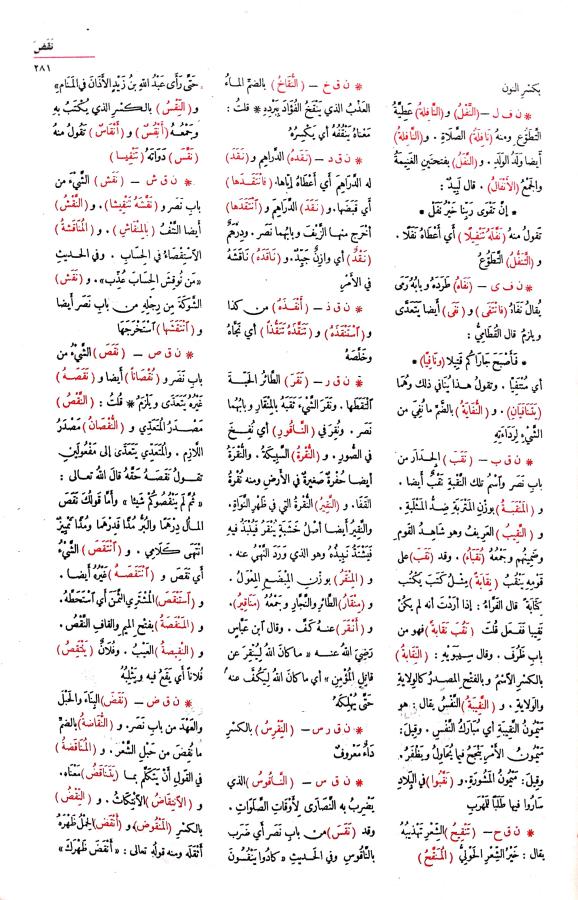 نَقَضَ
٢٨١
بِكَسْرِ النون
* ن ف ل – (النَّفْلُ) و (النَّافِلَةُ) عَطِيَّةُ
التَّطَوُّعِ ومنه (نَافِلَةُ) الصَّلَاةِ . و(النَّافِلَةُ)
أيضا وَلَدُ الوَلَدِ . و(النَّفَلُ) بفتحتين الغَنِيمَةُ
والجَمْعُ (الأَنْفَالُ) . قال لَبِيدٌ :
* إِنَّ تَقْوَى رَبِّنَا خَيْرُ نَفَلْ *
تقولُ منهُ (نَفَّلَهُ تَنْفِيلًا) أي أَعْطَاهُ نَفَلًا .
و(التَّنَفُّلُ) التَّطَوُّعُ
* ن ف ى – (نَفَاهُ) طَرَدَهُ وبابُهُ رَمَى
يُقَالُ نَفَاهُ (فَانْتَفَى) و (نَفَى) أيضا يَتَعَدَّى
ويلزمُ قال القُطَامِيُّ :
* فَأَصْبَحَ جَارَاكُمْ قَتِيلًا (ونَافِيًا) *
أي مُنْتَفِيًا . وتقولُ هذا يُنَافِي ذلك وهُمَا
(يَتَنَافَيَانِ) . و (النُّفَايَةُ) بالضَّم ما نُفِيَ من
الشَّيْءِ لِرَدَاءَتِهِ
* ن ق ب – (نَقَبَ) الجِدَارَ من
باب نَصَر وآسْمُ تلك النَّقْبَةِ نَقْبٌ أيضا .
و (المَنْقَبَةُ) بوزْنِ المَتْرَبَةِ ضِدُّ المَثْلَبَةِ .
و (النَّقِيبُ) العَرِيفُ وهو شَاهِدُ القومِ
وضَمِينُهم وجَمْعُهُ (نُقَبَاءُ) . وقد (نَقَبَ) على
قَوْمِهِ يَنْقُبُ (نِقَابَةً) مِثْلُ كَتَبَ يَكْتُبُ
كِتَابَةً . قال الفَرَّاءُ : إذا أَرَدْتَ أنه لم يكُنْ
نَقِيبًا فَفَعَلَ قُلْتَ (نَقُبَ نَقَابَةً) فهو من
بابِ ظَرُفَ . وقال سِيبَوَيْهِ : (النِّقَابَةُ)
بالكَسْرِ الاسْمُ و بالفتح المصدرُ كالوِلاَيةِ
والوَلايةِ . و (النَّقِيبَةُ) النَّفْسُ يقالُ : هو
مَيْمُونُ النَّقِيبَةِ أي مُبَارَكُ النَّفْسِ . وقيل :
مَيْمونُ الأَمْرِ يَنْجَحُ فيما يُحَاوِلُ ويَظْفَرُ .
وقيلَ : مَيْمُونُ المَشُورَةِ . و (نَقَّبُوا) في البِلادِ
سَارُوا فيها طَلَبًا لِلْمَهْرَبِ
* ن ق ح – (تَنْقِيحُ) الشِّعْرِ تَهْذِيبُهُ
يقال : خَيْرُ الشِّعْرِ الحَوْلِيُّ (المُنَقَّحُ)
* ن ق خ – (النُّقَاخُ) بالضَّمِّ الماءُ
العَذْبُ الذي يَنْقَخُ الفُؤَادَ بِبَرْدِهِ * قلتُ :
مَعْنَاهُ يَنْقُفُهُ أي يَكْسِرُهُ
* ن ق د – (نَقَدَهُ) الدَّرَاهِمَ و (نَقَدَ)
له الدَّرَاهِمَ أي أَعْطَاهُ إِيَّاها، (فَانْتَقَدَها)
أي قَبَضَها . و (نَقَدَ) الدَّرَاهِمَ و (آنْتَقَدَها)
أَخْرَجَ منها الزَّيْفَ وبابُهما نَصَر . ودِرْهَمٌ
(نَقْدٌ) أي وازِنٌ جَيِّدٌ. و (نَاقَدَهُ) نَاقَشَهُ
في الأَمْرِ
* ن ق ذ – (أَنْقَذَهُ) من كذا
و (آسْتَنْقَذَهُ) و (تَنَقَّذَهُ تَنَقُّذًا) أي نَجَّاهُ
وخَلَّصَهُ
* ن ق ر – (نَقَرَ) الطَّائرُ الحَبَّةَ
التَقَطَها . ونَقَرَ الشَّيْءَ ثَقَبَهُ بالمِنْقَارِ وبابُهما
نَصَر . ونُقِرَ في (النَّاقُورِ) أي نُفِخَ
في الصُّورِ . و (النُّقْرَةُ) السَّبِيكَةُ. والنُّقْرَةُ
أيضا حُفْرَةٌ صغيرةٌ في الأرضِ ومنه نُقْرَةُ
القَفَا . و (النَّقِيرُ) النُّقْرَةُ التي في ظَهْرِ النَّواةِ.
والنَّقِيرُ أيضا أَصْلُ خَشَبَةٍ يُنْقَرُ فَيُنْبَذُ فيهِ
فَيَشْتَدُّ نَبِيذُهُ وهو الذي وَرَدَ النَّهْيُ عنه .
و (المِنْقَرُ) بوزنِ المِبْضَعِ المِعْوَلُ .
و (مِنْقَارُ) الطَّائرِ والنَّجَّارِ وجَمْعُهُ (مَنَاقِيرُ).
و (أَنْقَرَ) عنهُ كَفَّ . وقال ابن عَبَّاسٍ
رَضِيَ اللهُ عنه « مَا كانَ اللهُ لِيُنْقِرَ عن
قاتِلِ المُؤْمِنِ » أي ماكانَ اللهُ لِيَكُفَّ عنهُ
حَتَّى يُهْلِكَهُ
* ن ق ر س – (النِّقْرِسُ) بالكَسْرِ
دَاءٌ مَعْروفٌ
* ن ق س – (النَّاقُوسُ) الذي
يَضْرِبُ به النَّصَارَى لأَوْقَاتِ الصَّلَوَاتِ .
وقد (نَقَسَ) من باب نَصَر أي ضَرَبَ
بالنَّاقُوسِ وفي الحَدِيثِ « كَادُوا يَنْقُسُونَ
حَتَّى رَأَى عَبْدُ اللهِ بنُ زَيْدٍ الأَذَانَ في المَنَامِ »
و (النِّقْسُ) بالكَسْرِ الذي يُكْتَبُ بِهِ
وجَمْعُهُ (أَنْقُسٌ) و (أَنْقَاسٌ) تَقُولُ منه
(نَقَّسَ) دَوَاتَهُ (تَنْقِيسا)
* ن ق ش – (نَقَشَ) الشَّيْءَ من
باب نَصَر و (نَقَّشَهُ تَنْقِيشًا) . و (النَّقْشُ)
أيضا النَّتْفُ (بالمِنْقَاشِ) . و (المُنَاقَشَةُ)
الاسْتِقْصَاءُ في الحِسَابِ . وفي الحديثِ
«مَن نُوقِشَ الحِسَابَ عُذِّبَ» . و (نَقَشَ)
الشَّوْكَةَ مِن رِجْلِهِ من باب نَصَرَ أيضا
و (آنْتَقَشَها) آسْتَخْرَجَها
* ن ق ص – (نَقَصَ) الشَّيْءُ من
باب نَصَر و (نُقْصَانًا) أيضا و (نَقَصَهُ)
غَيْرُهُ يَتَعَدَّى ويَلْزَمُ * قُلتُ : (النَّقْصُ)
مَصْدَرُ المُتَعَدِّي و (النُّقْصَانُ) مَصْدَرُ
اللازِمِ . والمُتَعَدِّي يَتَعَدَّى إلى مَفْعُولَيْنِ
تقـولُ نَقَصَهُ حَقَّهُ قالَ اللهُ تعالى :
« ثُمَّ لَمْ يَنْقُصُوكُمْ شَيْئًا » وأمَّا قَولُكَ نَقَصَ
المالُ دِرْهَمًا والبُرُّ مُدًّا فدِرْهَمًا ومُدًّا تَمْيِيزٌ
انْتَهَى كَلَامِي . و (آنْتَقَصَ) الشَّيْءُ
أي نَقَصَ و (آنْتَقَصَهُ) غَيْرُهُ أيضا .
و (آسْتَنْقَصَ) المُشْتَرِي الثَّمَنَ أي آسْتَحَطَّهُ.
و (المَنْقَصَةُ) بفتح الميمِ والقافِ النَّقْصُ .
و (النَّقِيصةُ) العَيْبُ . وفُلَانٌ (يَنْتَقِصُ)
فُلَانًا أي يَقَعُ فيهِ ويَثْلِبُهُ
* ن ق ض – (نَقَضَ) البِنَاءَ والحَبْلَ
والعَهْدَ من بابِ نَصَرَ. و (النُّقَاضَةُ) بالضَّمِّ
ما نُقِضَ مِن حَبْلِ الشَّعَرِ . و (المُنَاقَضَةُ)
في القَوْلِ أنْ يُتَكَلَّمَ بما (يَتَنَاقَضُ) مَعْنَاه.
و (الانْتِقَاضُ) الانْتِكَاثُ . و (النِّقْضُ)
بالكسْرِ (المَنْقُوضُ) و (أَنْقَضَ) الحِمْلُ ظَهْرَهُ
أَثْقَلَهُ ومنه قولُه تعالى : « أَنْقَضَ ظَهْرَكَ »